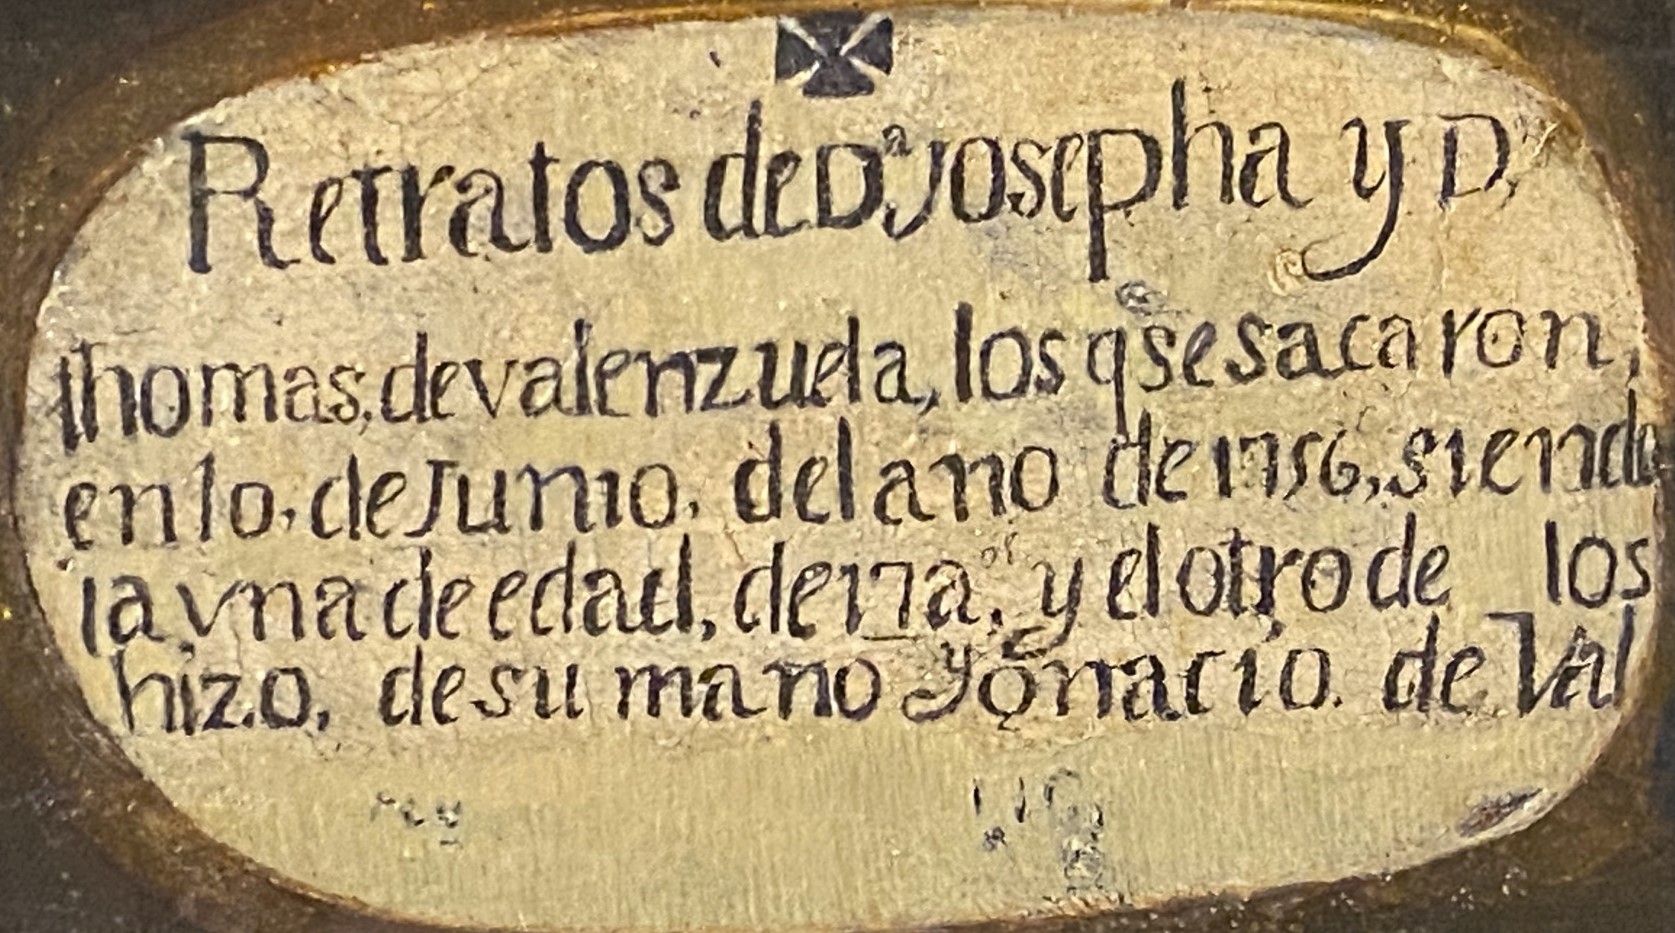 Retratos de Dª Josepha y Dⁿ
thomas, de valenzuela, los q̃ se sacaron,
en 10, de Junio, del ano de 1756, siendo
la vna de edad, de 17 aᵒˢ, y el otro de los
hizo, de su mano Ygnacio. de Val